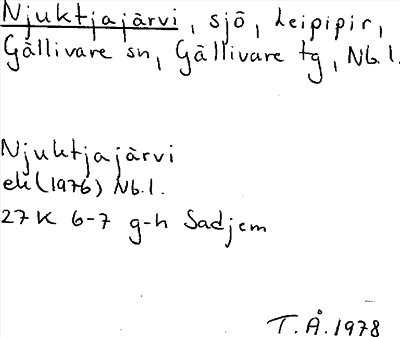 Njuktjajärvi, sjö, Leipipir,
Gällivare sn, Gällivare tg, Nb.l.
Njuktjajärvi
ek (1976) Nb.l.
27 K 6-7 g-h Sadjem
T.Å. 1978